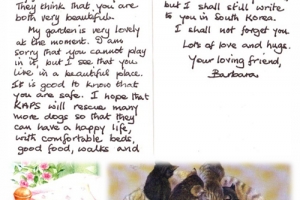 They think that you are
both very beautiful.
My garden is very lovely
at the moment. I am
sorry that you cannot play
in it, but I see that you
live in a beautiful place.
It is good to know that
you are safe. I hope that
KAPS will rescue many
more dogs so that they
can have a happy life,
with comfortable beds,
good food, walks and
but I shall still write
to you in South Korea.
I shall not forget you.
Lots of love and hugs.
Your loving friend,
Barbara.